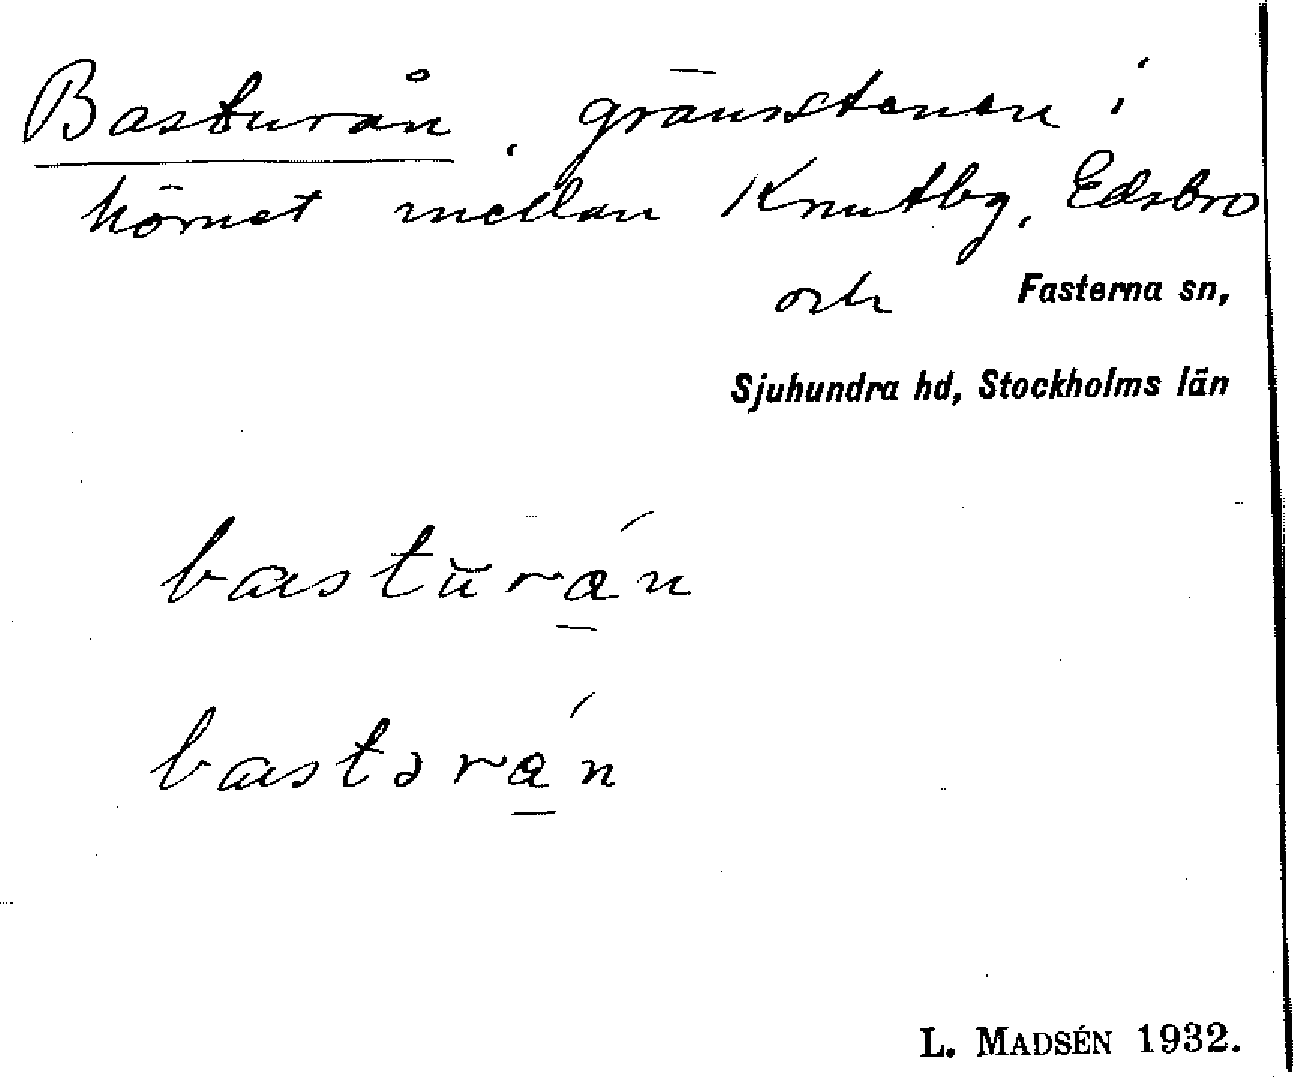 Basturån, gränsstenen i
hörnet mellan Knutby, Edsbro
och Fasterna sn,
Sjuhundra hd, Stockholms län
bastŭra̱´n
bastəra̱´n
L. MADSÉN 1932.